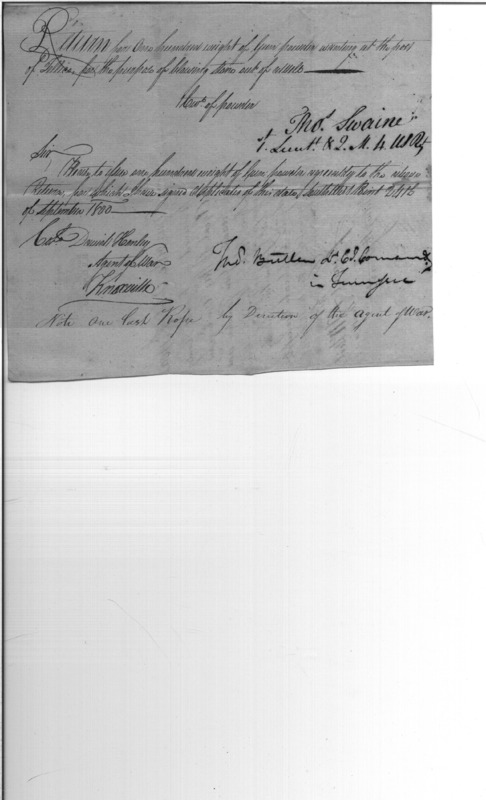 Return for One hundred weight of Gun powder wanting at the post
of Tellico, for the purpose of blowing stone out of a well
1 Cwt. of powder
Thos. Swaine
1. Lieut. & Q. M. 4 U S Rt
Sir
Please to issue one hundred weight of Gun powder agreeably to the above
Return, for which I have signed duplicates of this date,
of September 1800
Col. David Henley
Agent of War
Knoxville
Thos. Butler Lt. Col. Comand
in Tennessee
Note One Cask Rifle by Direction of the Agent of War